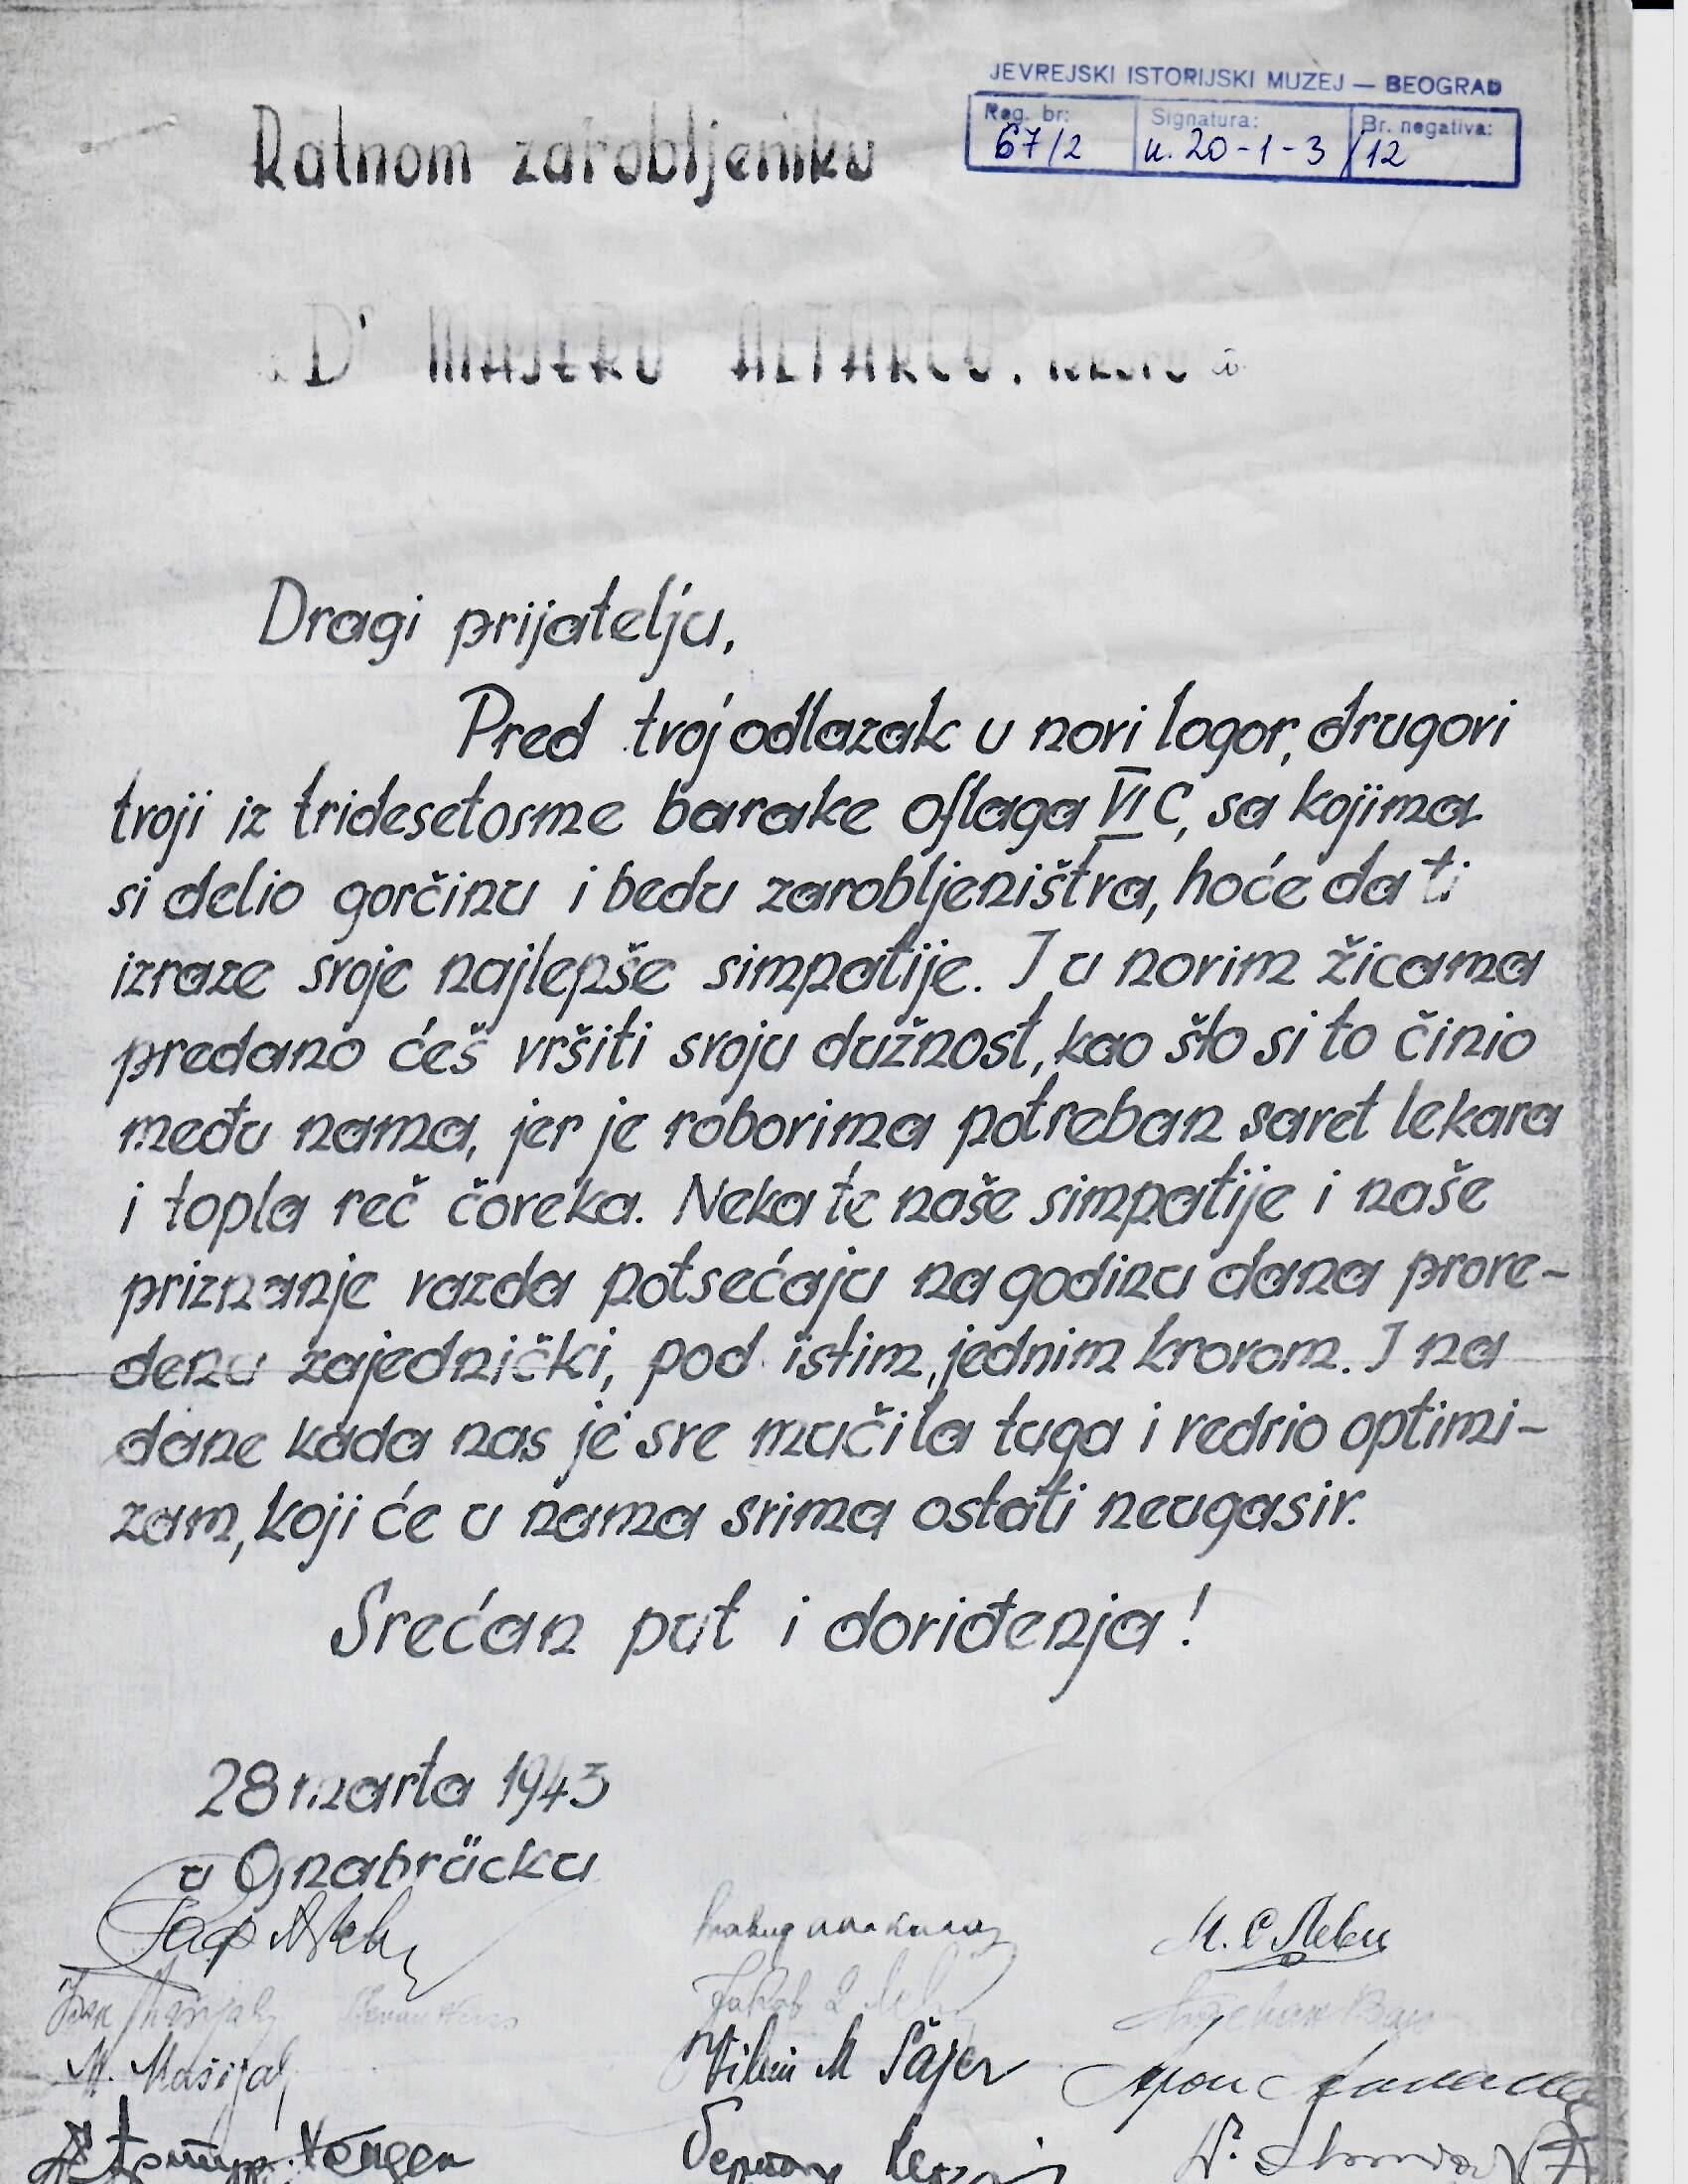 JEVREJSKI ISTORIJSKI MUZEJ — BEOGRAD
Reg. br: Signatura: Br. negativa:
67/2 u. 20-1-3 /12
Ratnom zarobljeniku
Dr MAJERU ALTARCU,
Dragi prijatelju,
Pred tvoj odlazak u novi logor, drugovi
tvoji iz tridesetosme barake Oflaga VI C, sa kojima
si delio gorčinu i bedu zarobljeništva, hoće da ti
izraze svoje najlepše simpatije. I u novim žicama
predano ćeš vršiti svoju dužnost, kao što si to činio
među nama, jer je robovima potreban savet lekara
i topla reč čoveka. Neka te naše simpatije i naše
priznanje vazda potsećaju na godinu dana prove-
denu zajednički, pod istim, jednim krovom. I na
dane kada nas je sve mučila tuga i vedrio optimi-
zam, koji će u nama svima ostati neugasiv.
Srećan put i doviđenja!
28 marta 1943
u Osnabrücku
M. C. Леви
Jakob L
M. Mašijah
Vilim M Šajer